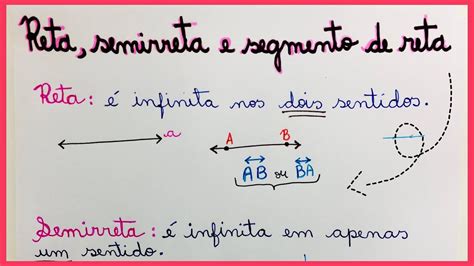 Reta, semirreta e segmento de reta
Reta: é infinita nos dois sentidos.
a
A B
AB ou BA
Semirreta: é infinita em apenas
um sentido.